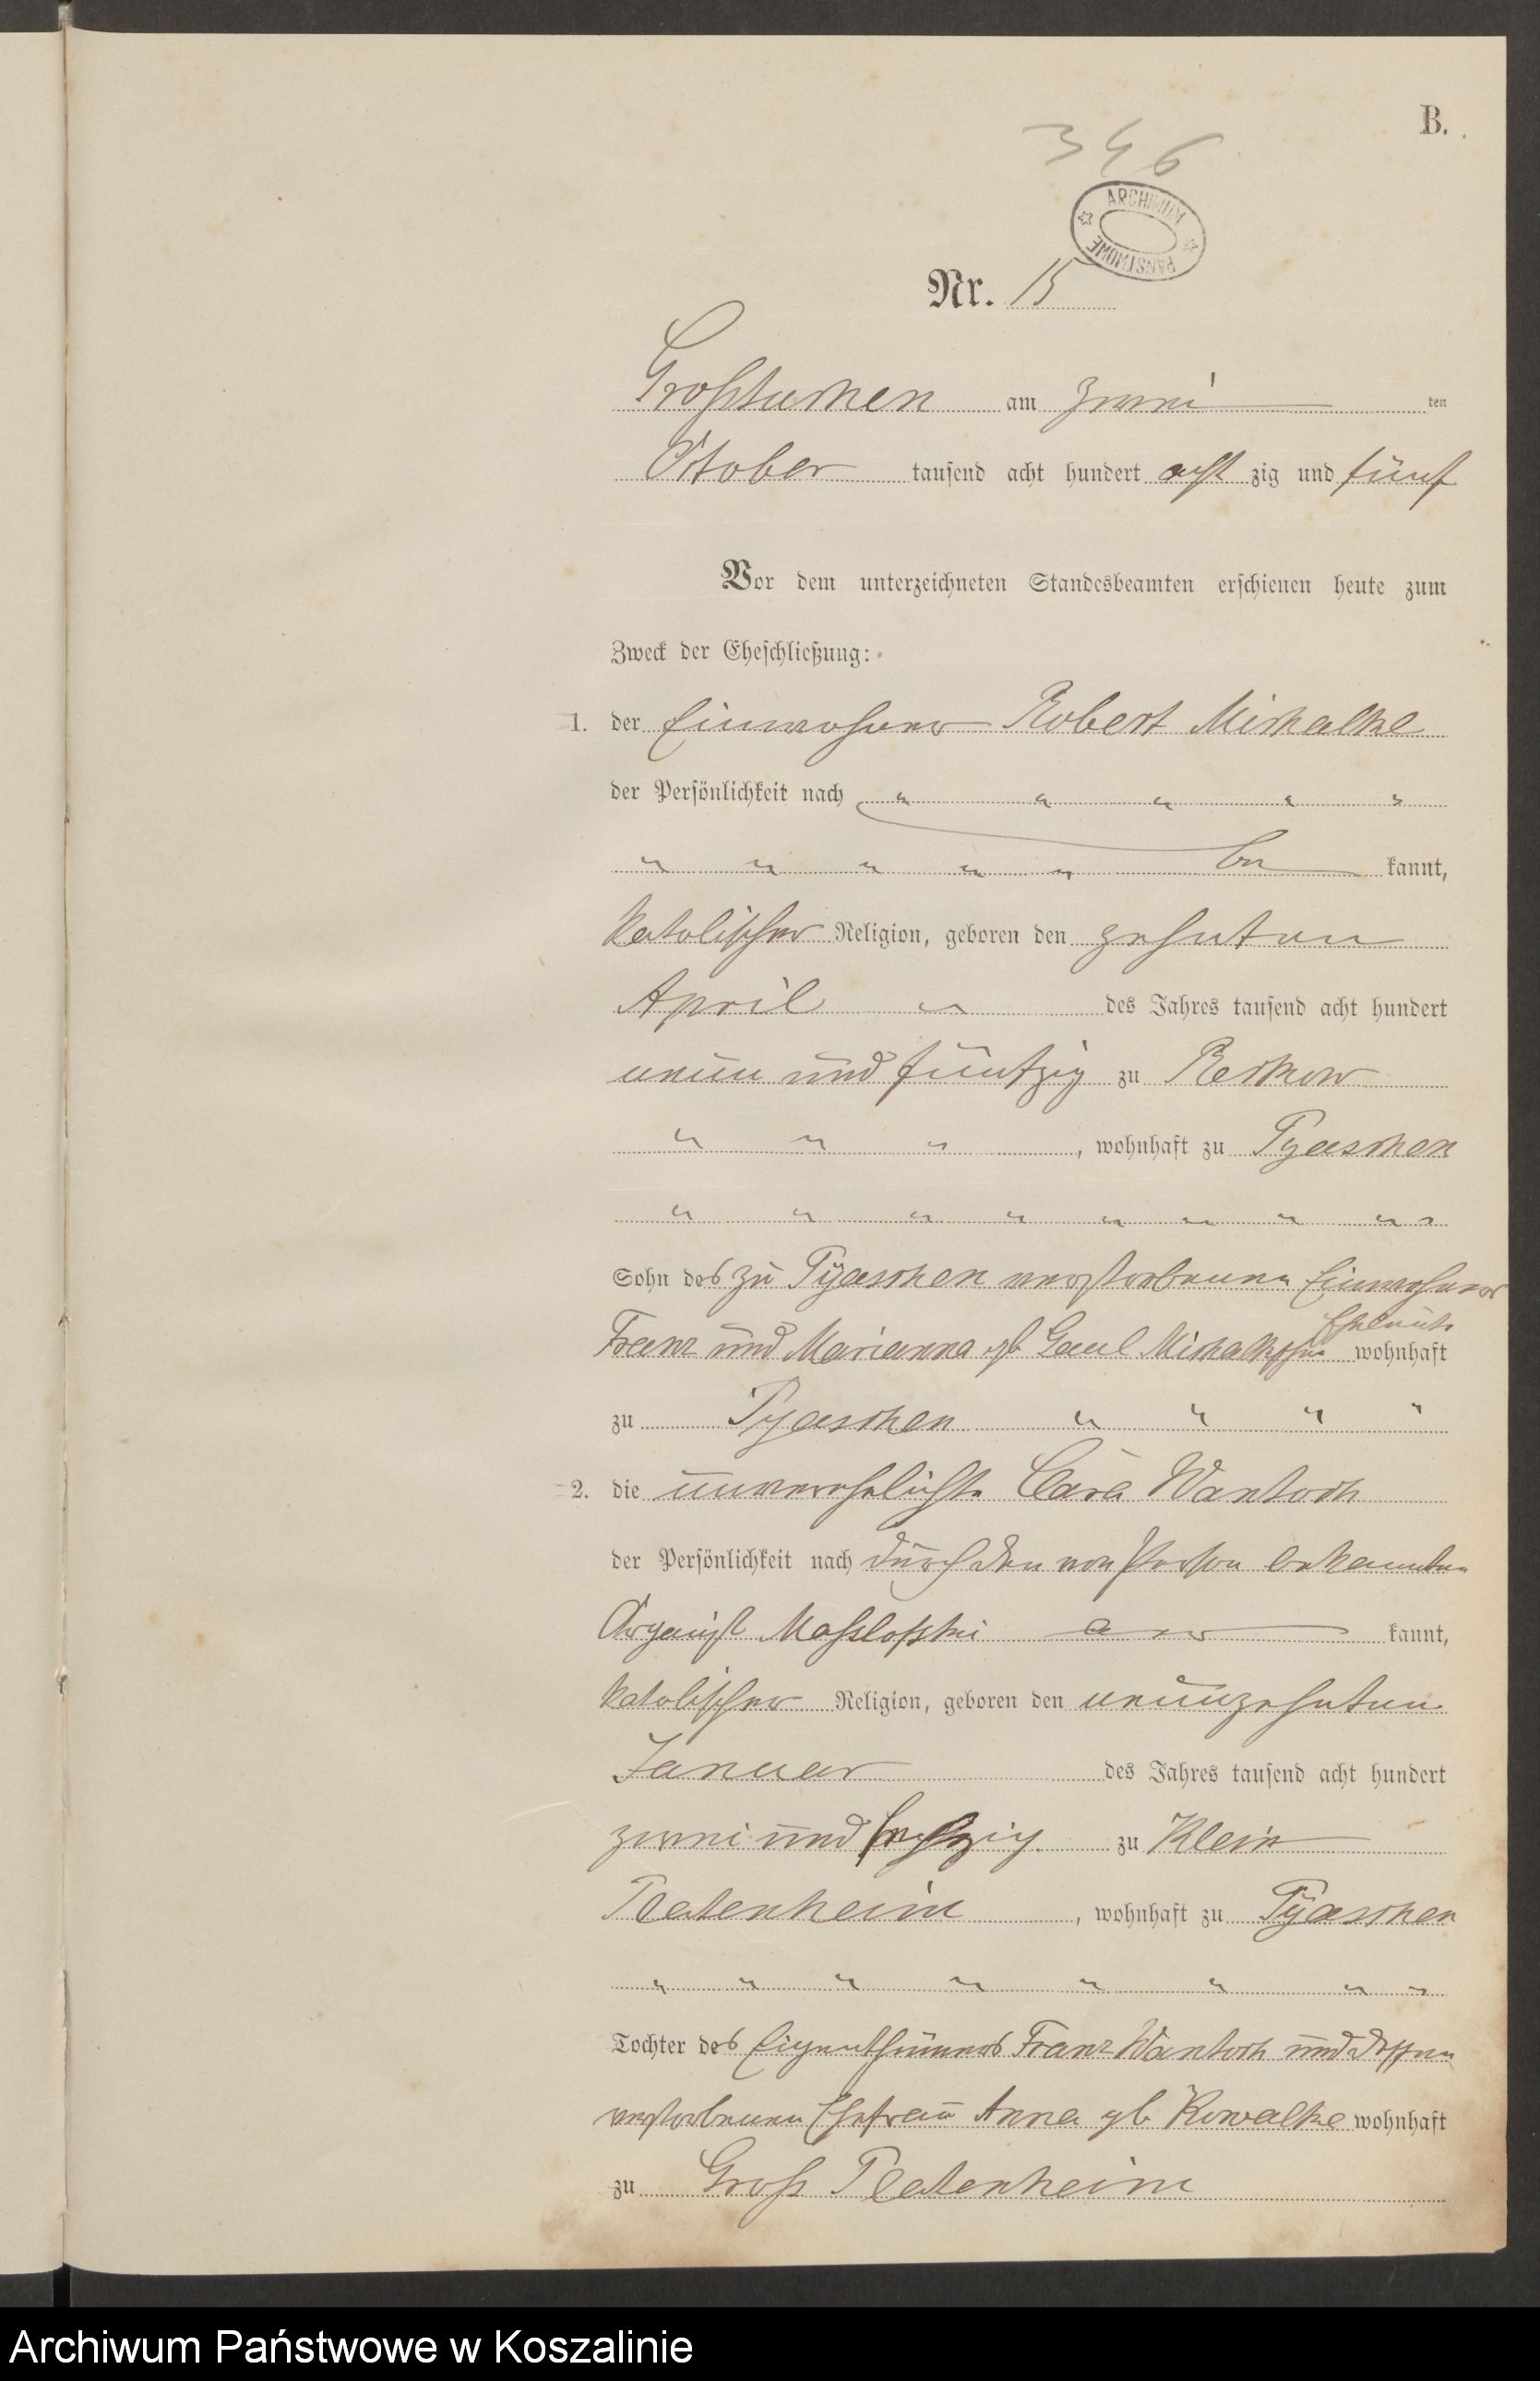 B.
346
ARCHIWUM PAŃSTWOWE
Nr. 15
Großtuchen am zwei ten
October tausend acht hundert acht zig und fünf
Vor dem unterzeichneten Standesbeamten erschienen heute zum
Zweck der Eheschließung:
1. der Einwohner Robert Michalke
der Persönlichkeit nach " " " " "
" " " " " be kannt,
katolischer Religion, geboren den zehnten
April " des Jahres tausend acht hundert
neun und fünfzig zu Reckow
" " " , wohnhaft zu Pyaschen
" " " " " " " " "
Sohn des zu Pyaschen verstorbenen Einwohner
Eheleute
Franz und Marianna gb Gaul Michalkschen wohnhaft
zu Pyaschen " " " "
2. die unverehelichte Clara Wantoch
der Persönlichkeit nach durch den von Person bekannten
Organist Maßloffski a ner kannt,
katolischer Religion, geboren den neunzehnten
Januar des Jahres tausend acht hundert
zwei und sechszig zu Klein
Platenheim , wohnhaft zu Pyaschen
" " " " " " " "
Tochter des Eigenthümers Franz Wantoch und dessen
verstorbenen Ehefrau Anna gb Kowalke wohnhaft
zu Groß Platenheim
Archiwum Państwowe w Koszalinie